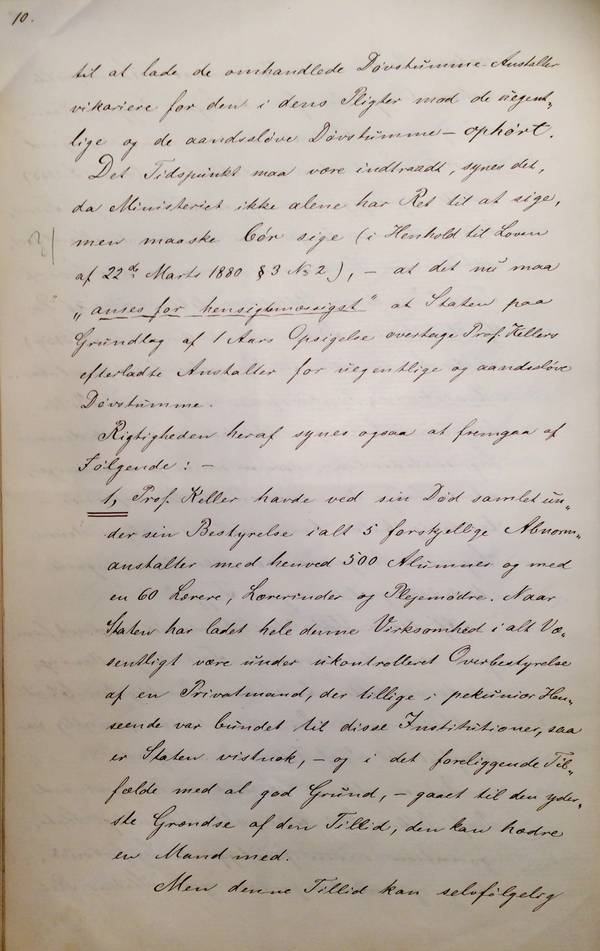 10.
til at lade de omhandlede Døvstumme-Anstalter
vikariere for den i dens Pligter mod de uegent-
lige og de aandssløve Døvstumme – ophørt.
Det Tidspunkt maa være indtraadt, synes det,
da Ministeriet ikke alene har Ret til at sige,
men maaske bør sige (i Henhold til Loven
af 22de Marts 1880 § 3 No 2), – at det nu maa
„anses for hensigtsmæssigst" at Staten paa
Grundlag af 1 Aars Opsigelse overtage Prof. Kellers
efterladte Anstalter for uegentlige og aandssløve
Døvstumme.
Rigtigheden heraf synes ogsaa at fremgaa af
Følgende: –
1, Prof. Keller havde ved sin Død samlet un-
der sin Bestyrelse ialt 5 forskjellige Abnorm-
anstalter med henved 500 Alumner og med
en 60 Lærere, Lærerinder og Plejemødre. Naar
Staten har ladet hele denne Virksomhed i alt Væ-
sentligt være under ukontrolleret Overbestyrelse
af en Privatmand, der tillige i pekuniær Hen-
seende var bundet til disse Institutioner, saa
er Staten vistnok, – og i det foreliggende Til-
fælde med al god Grund, – gaaet til den yder-
ste Grændse af den Tillid, den kan hædre
en Mand med.
Men denne Tillid kan selvfølgelig